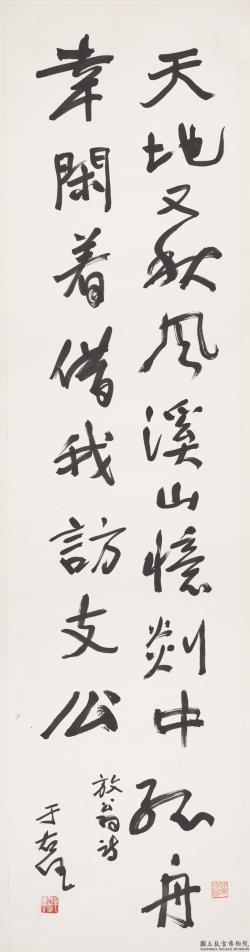 天地又秋風溪山憶剡中孤舟
幸閑着借我訪支公
放翁詩
于右任
國立故宮博物院
NATIONAL PALACE MUSEUM